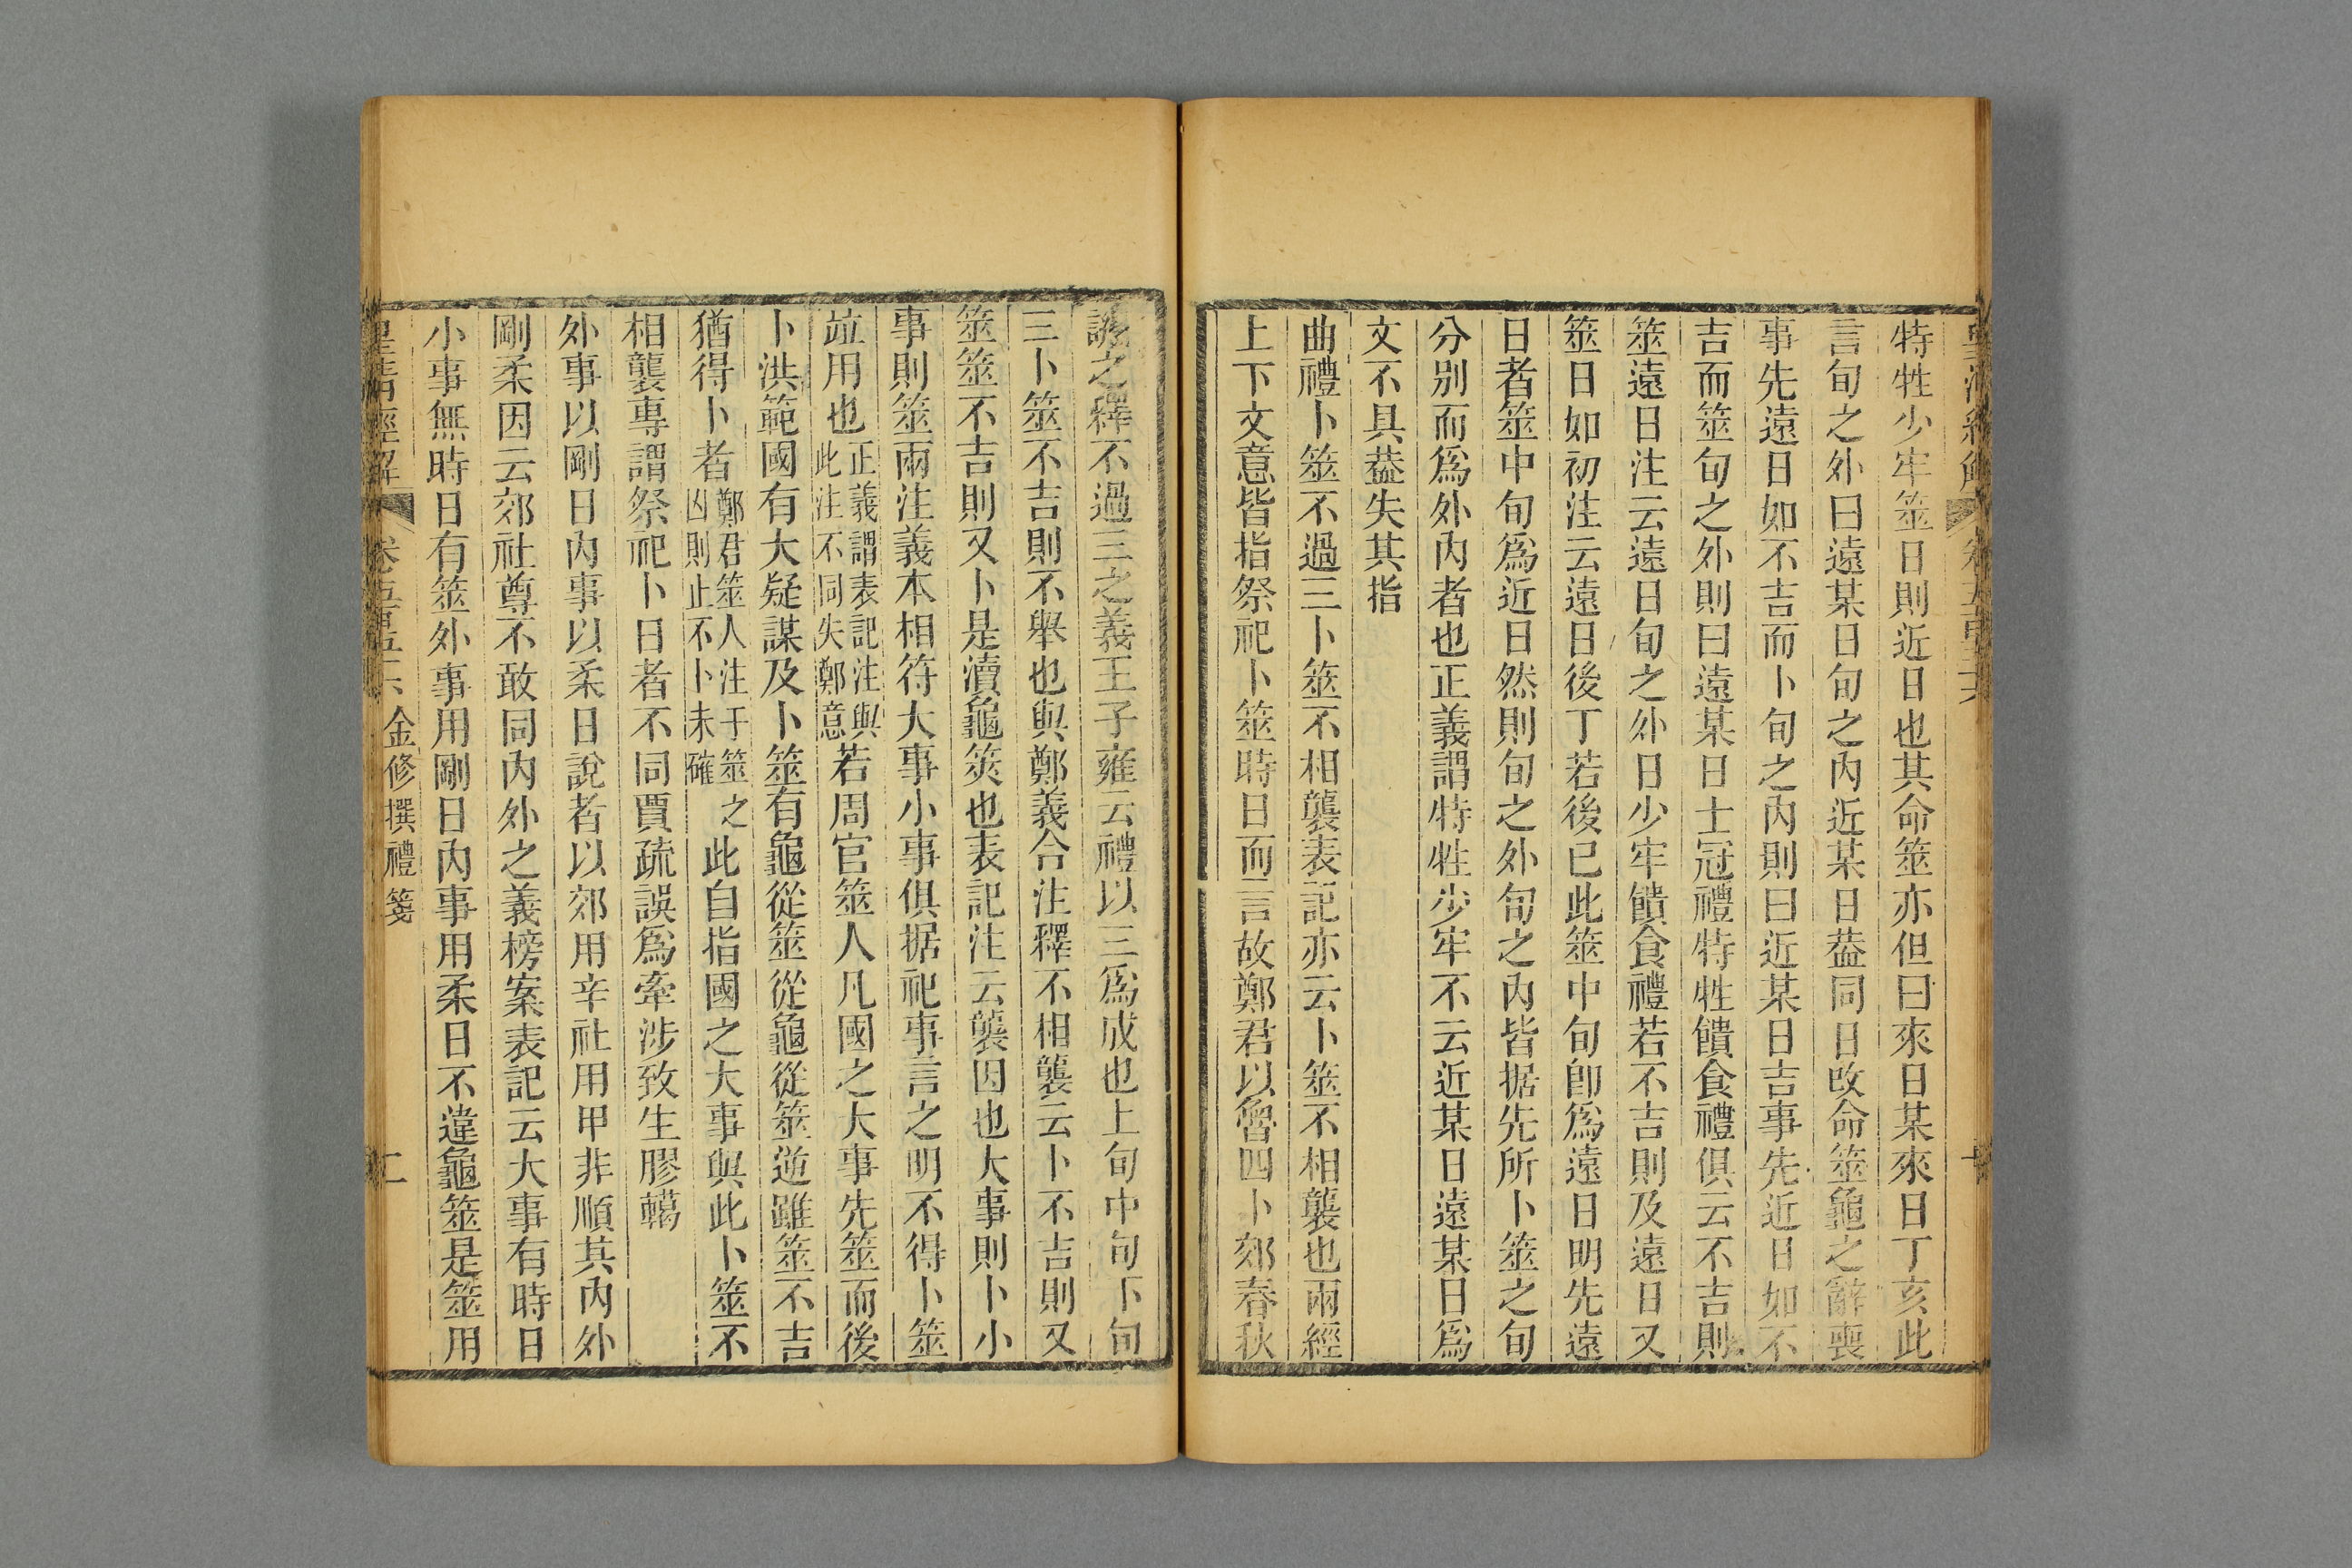 特牲少牢筮日則近日也其命筮亦但曰來日某來日丁亥此
言旬之外曰遠某日旬之內近某日葢同日改命筮龜之辭喪
事先遠日如不吉而卜旬之內則曰近某日吉事先近日如不
吉而筮旬之外則曰遠某日士冠禮特牲饋食禮俱云不吉則
筮遠日注云遠日旬之外日少牢饋食禮若不吉則及遠日又
筮日如初注云遠日後丁若後已此筮中旬卽爲遠日明先遠
日者筮中旬爲近日然則旬之外旬之內皆据先所卜筮之旬
分别而爲外內者也正義謂特牲少牢不云近某日遠某日爲
文不具葢失其指
曲禮卜筮不過三卜筮不相襲表記亦云卜筮不相襲也兩經
上下文意皆指祭祀卜筮時日而言故鄭君以魯四卜郊春秋
譏之釋不過三之義王子雍云禮以三爲成也上旬中旬下旬
三卜筮不吉則不舉也與鄭義合注釋不相襲云卜不吉則又
筮筮不吉則又卜是瀆龜筴也表記注云襲因也大事則卜小
事則筮兩注義本相符大事小事俱据祀事言之明不得卜筮
竝用也正義謂表記注與此注不同失鄭意若周官筮人凡國之大事先筮而後
卜洪範國有大疑謀及卜筮有龜從筮從龜從筮逆雖筮不吉
猶得卜者鄭君筮人注于筮之凶則止不卜未確此自指國之大事與此卜筮不
相襲專謂祭祀卜日者不同賈疏誤爲牽涉致生膠轕
外事以剛日內事以柔日說者以郊用辛社用甲非順其內外
剛柔因云郊社尊不敢同內外之義榜案表記云大事有時日
小事無時日有筮外事用剛日內事用柔日不違龜筮是筮用
皇淸經解 卷五百五十六 金修撰禮箋 二